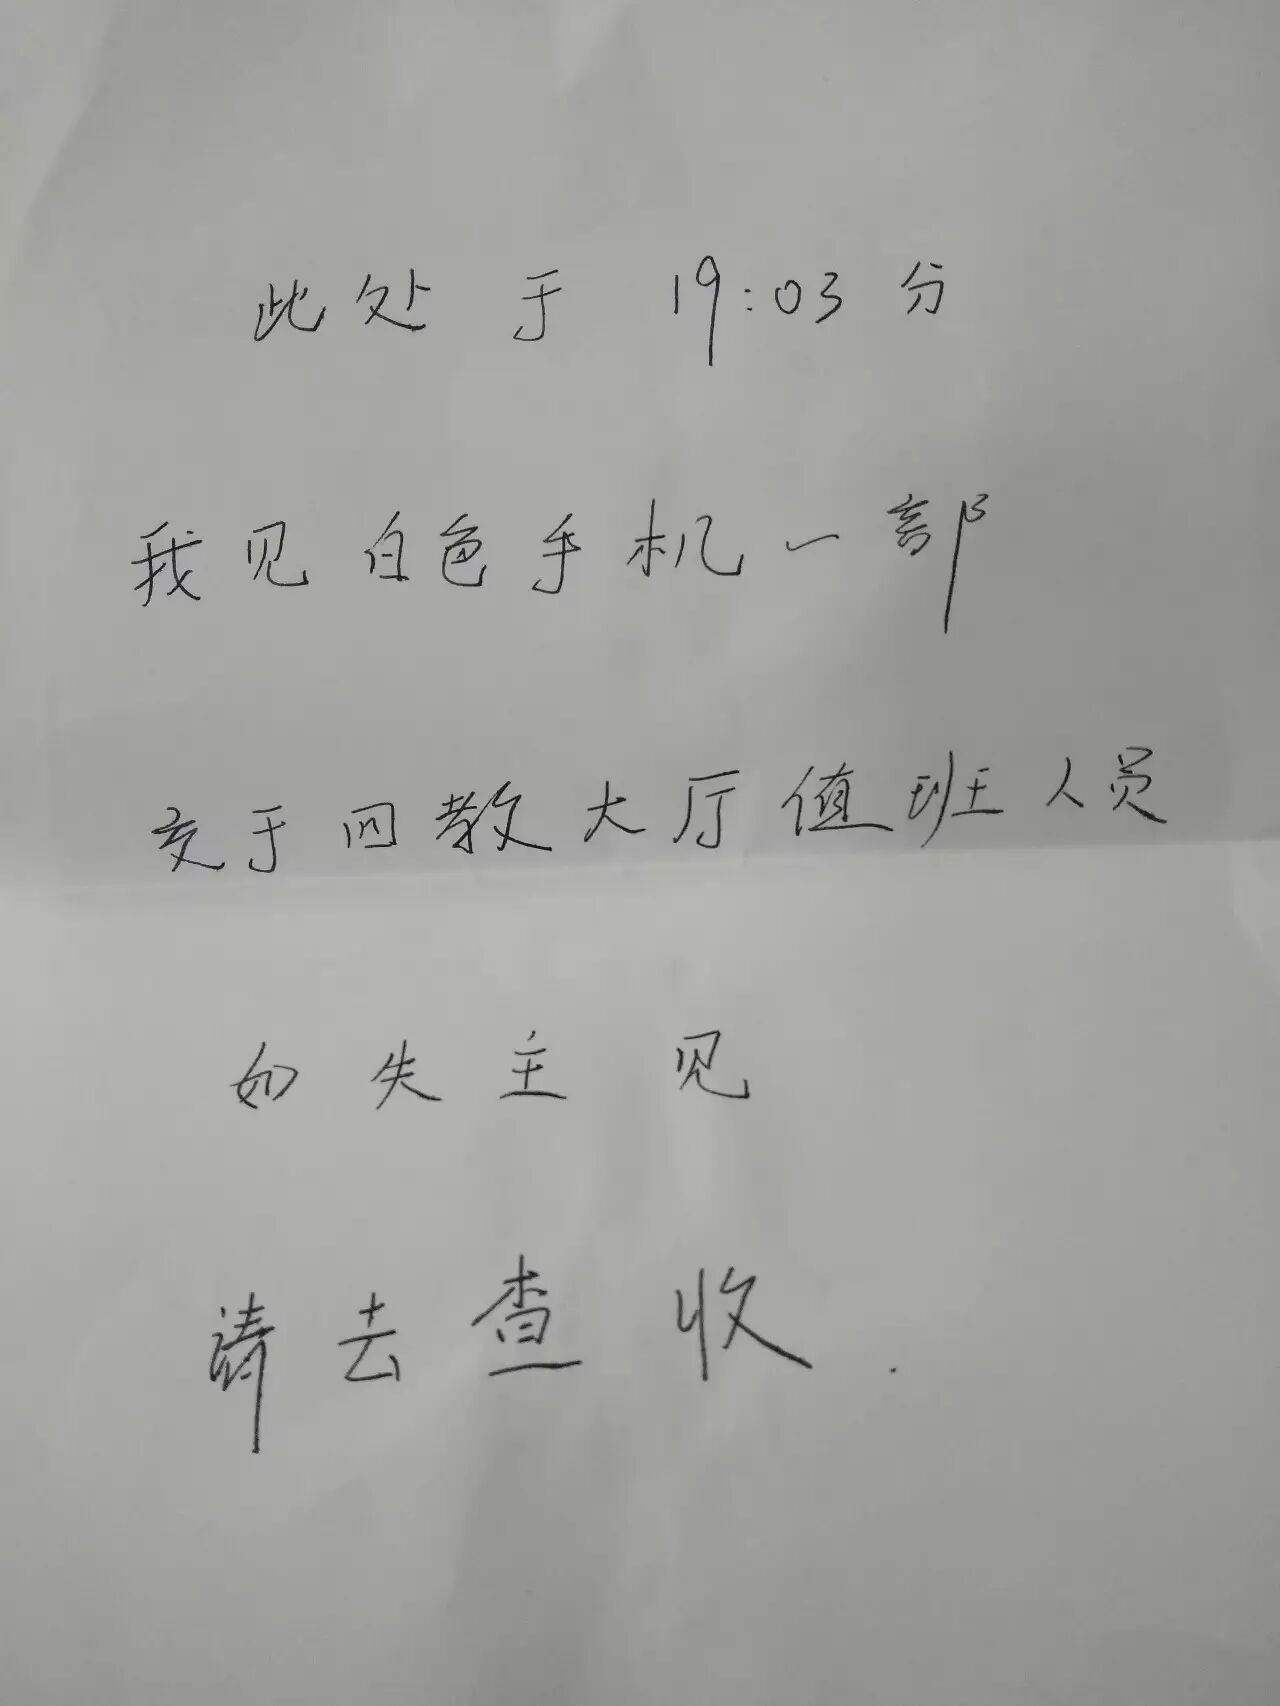 此处于 19:03分
我见白色手机一部
交于四教大厅值班人员
如失主见
请去查收.